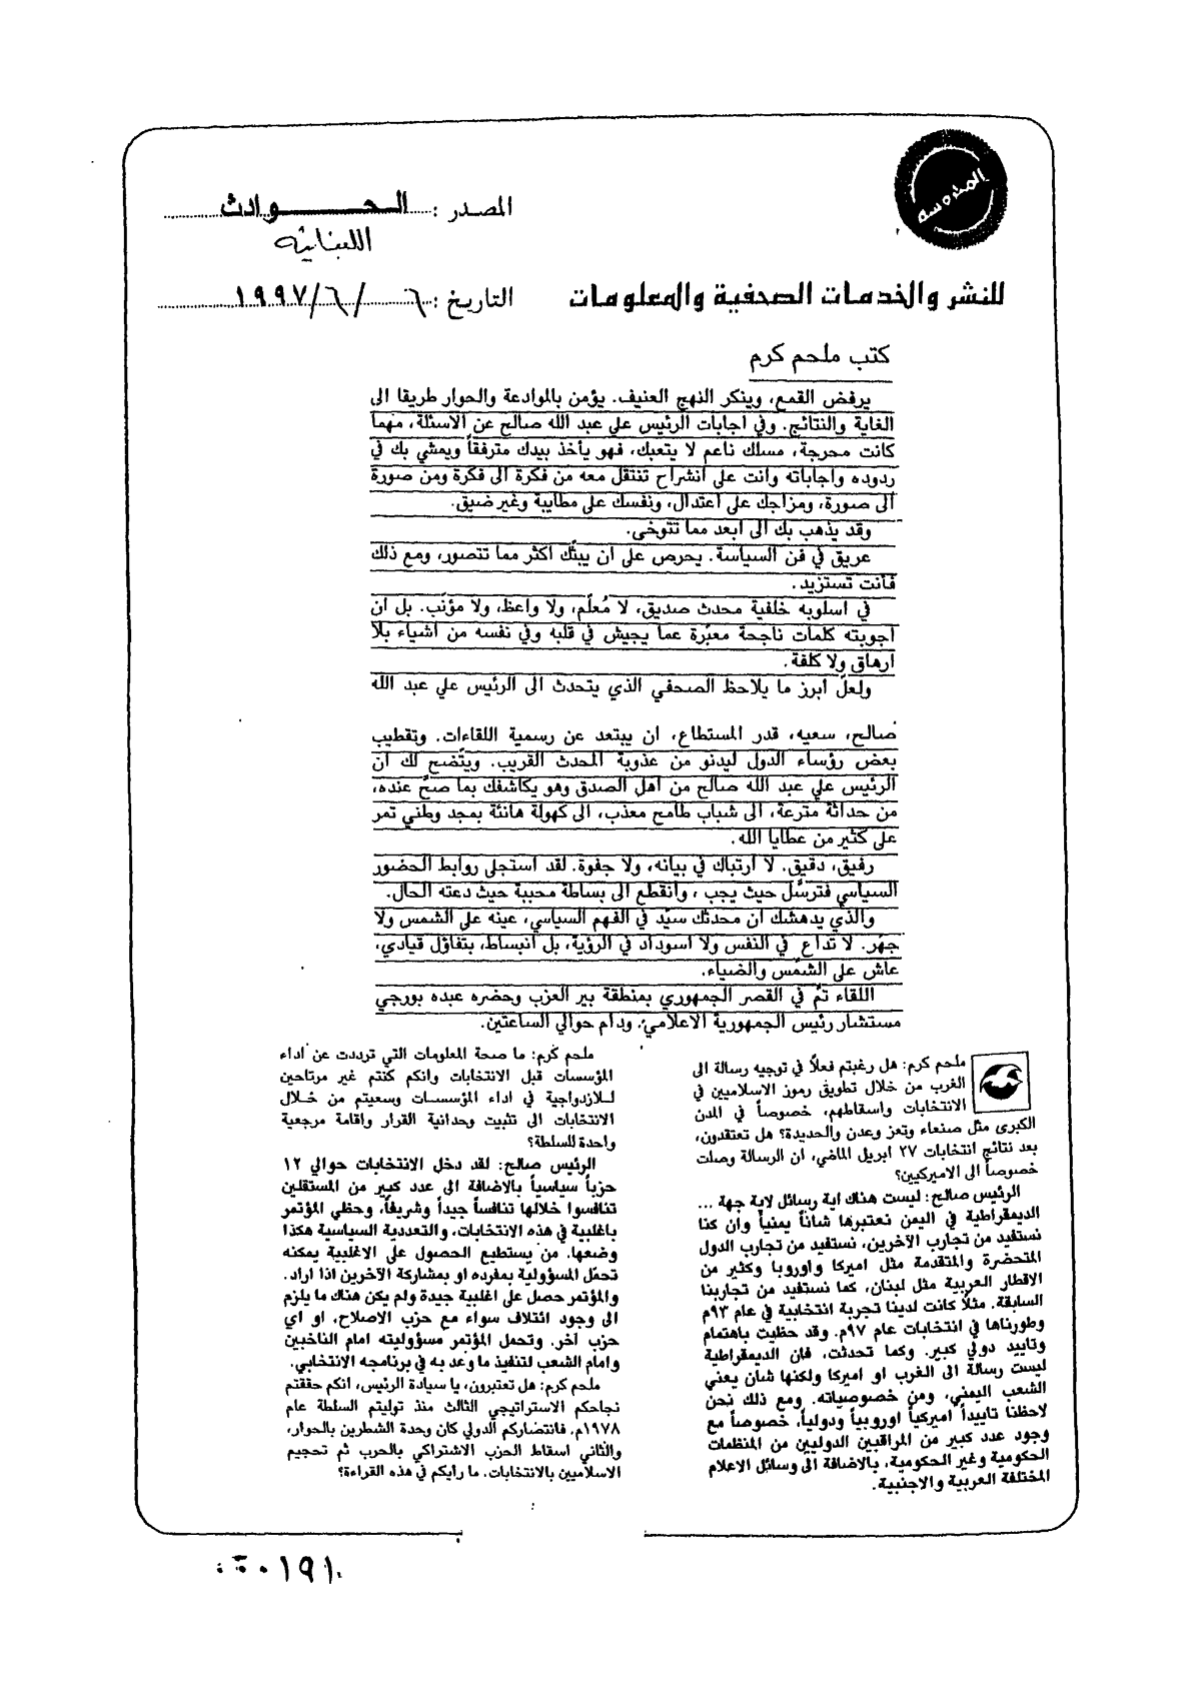 المدوسه
المصدر: الحـوادث
اللبنانيه
للنشر والخدمات الصحفية والمعلومات
التاريخ: ٦/٦/١٩٩٧
كتب ملحم كرم
يرفض القمع، وينكر النهج العنيف. يؤمن بالموادعة والحوار طريقا الى
الغاية والنتائج. وفي اجابات الرئيس علي عبد الله صالح عن الاسئلة، مهما
كانت محرجة، مسلك ناعم لا يتعبك، فهو يأخذ بيدك مترفقاً ويمشي بك في
ردوده واجاباته وانت على انشراح تنتقل معه من فكرة الى فكرة ومن صورة
الى صورة، ومزاجك على اعتدال، ونفسك على مطايبة وغير ضيق.
وقد يذهب بك الى ابعد مما تتوخى.
عريق في فن السياسة. يحرص على ان يبثّك اكثر مما تتصور، ومع ذلك
فأنت تستزيد.
في اسلوبه خلفية محدث صديق، لا مُعلّم، ولا واعظ، ولا مؤنّب. بل ان
اجوبته كلمات ناجحة معبّرة عما يجيش في قلبه وفي نفسه من اشياء بلا
ارهاق ولا كلفة.
ولعلّ ابرز ما يلاحظ الصحفي الذي يتحدث الى الرئيس علي عبد الله
صالح، سعيه، قدر المستطاع، ان يبتعد عن رسمية اللقاءات. وتقطيب
بعض رؤساء الدول ليدنو من عذوبة المحدث القريب. ويتّضح لك ان
الرئيس علي عبد الله صالح من اهل الصدق وهو يكاشفك بما صحّ عنده،
من حداثة مترعة، الى شباب طامح معذب، الى كهولة هانئة بمجد وطني تمر
على كثير من عطايا الله.
رفيق، دقيق. لا ارتباك في بيانه، ولا جفوة. لقد استجلى روابط الحضور
السياسي فترسّل حيث يجب، وانقطع الى بساطة محببة حيث دعته الحال.
والذي يدهشك ان محدثك سيّد في الفهم السياسي، عينه على الشمس ولا
جهر. لا تداع في النفس ولا اسوداد في الرؤية، بل انبساط، بتفاؤل قيادي،
عاش على الشمس والضياء.
اللقاء تمّ في القصر الجمهوري بمنطقة بير العزب وحضره عبده بورجي
مستشار رئيس الجمهورية الاعلامي. ودام حوالي الساعتين.
ملحم كرم: هل رغبتم فعلاً في توجيه رسالة الى
الغرب من خلال تطويق رموز الاسلاميين في
الانتخابات واسقاطهم، خصوصاً في المدن
الكبرى مثل صنعاء وتعز وعدن والحديدة؟ هل تعتقدون،
بعد نتائج انتخابات ٢٧ ابريل الماضي، ان الرسالة وصلت
خصوصاً الى الاميركيين؟
الرئيس صالح: ليست هناك اية رسائل لاية جهة ...
الديمقراطية في اليمن نعتبرها شاناً يمنياً وان كنا
نستفيد من تجارب الآخرين، نستفيد من تجارب الدول
المتحضرة والمتقدمة مثل اميركا واوروبا وكثير من
الاقطار العربية مثل لبنان، كما نستفيد من تجاربنا
السابقة. مثلاً كانت لدينا تجربة انتخابية في عام ٩٣م
وطورناها في انتخابات عام ٩٧م. وقد حظيت باهتمام
وتاييد دولي كبير. وكما تحدثت، فان الديمقراطية
ليست رسالة الى الغرب او اميركا ولكنها شان يعني
الشعب اليمني، ومن خصوصياته. ومع ذلك نحن
لاحظنا تاييداً اميركياً اوروبياً ودولياً، خصوصاً مع
وجود عدد كبير من المراقبين الدوليين من المنظمات
الحكومية وغير الحكومية، بالاضافة الى وسائل الاعلام
المختلفة العربية والاجنبية.
ملحم كرم: ما صحة المعلومات التي ترددت عن اداء
المؤسسات قبل الانتخابات وانكم كنتم غير مرتاحين
للازدواجية في اداء المؤسسات وسعيتم من خلال
الانتخابات الى تثبيت وحدانية القرار واقامة مرجعية
واحدة للسلطة؟
الرئيس صالح: لقد دخل الانتخابات حوالي ١٢
حزباً سياسياً بالاضافة الى عدد كبير من المستقلين
تنافسوا خلالها تنافساً جيداً وشريفاً، وحظي المؤتمر
باغلبية في هذه الانتخابات، والتعددية السياسية هكذا
وضعها. من يستطيع الحصول على الاغلبية يمكنه
تحمّل المسؤولية بمفرده او بمشاركة الآخرين اذا اراد.
والمؤتمر حصل على اغلبية جيدة ولم يكن هناك ما يلزم
الى وجود ائتلاف سواء مع حزب الاصلاح، او اي
حزب آخر. وتحمل المؤتمر مسؤوليته امام الناخبين
وامام الشعب لتنفيذ ما وعد به في برنامجه الانتخابي.
ملحم كرم: هل تعتبرون، يا سيادة الرئيس، انكم حققتم
نجاحكم الاستراتيجي الثالث منذ توليتم السلطة عام
١٩٧٨م. فانتصاركم الدولي كان وحدة الشطرين بالحوار،
والثاني اسقاط الحزب الاشتراكي بالحرب ثم تحجيم
الاسلاميين بالانتخابات. ما رايكم في هذه القراءة؟